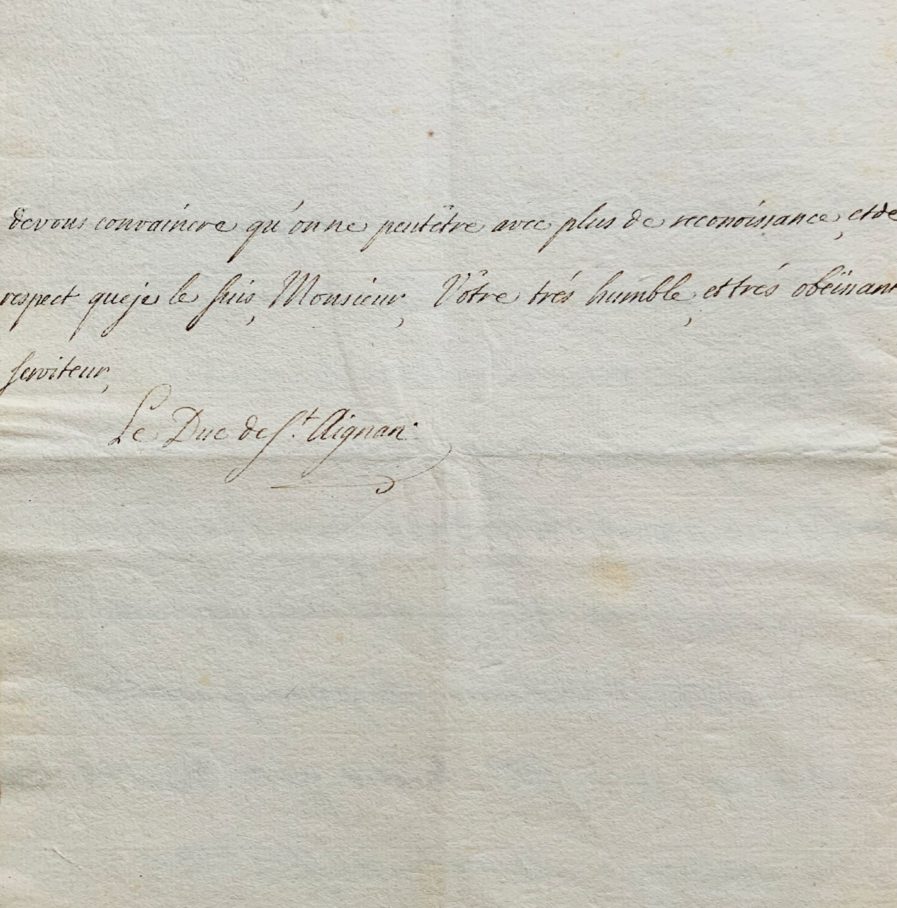 de vous convaincre qu'on ne peut être avec plus de reconoissance, et de
respect que je le suis, Monsieur, Vôtre trés humble, et trés obeissant
serviteur,
Le Duc de St. Aignan.